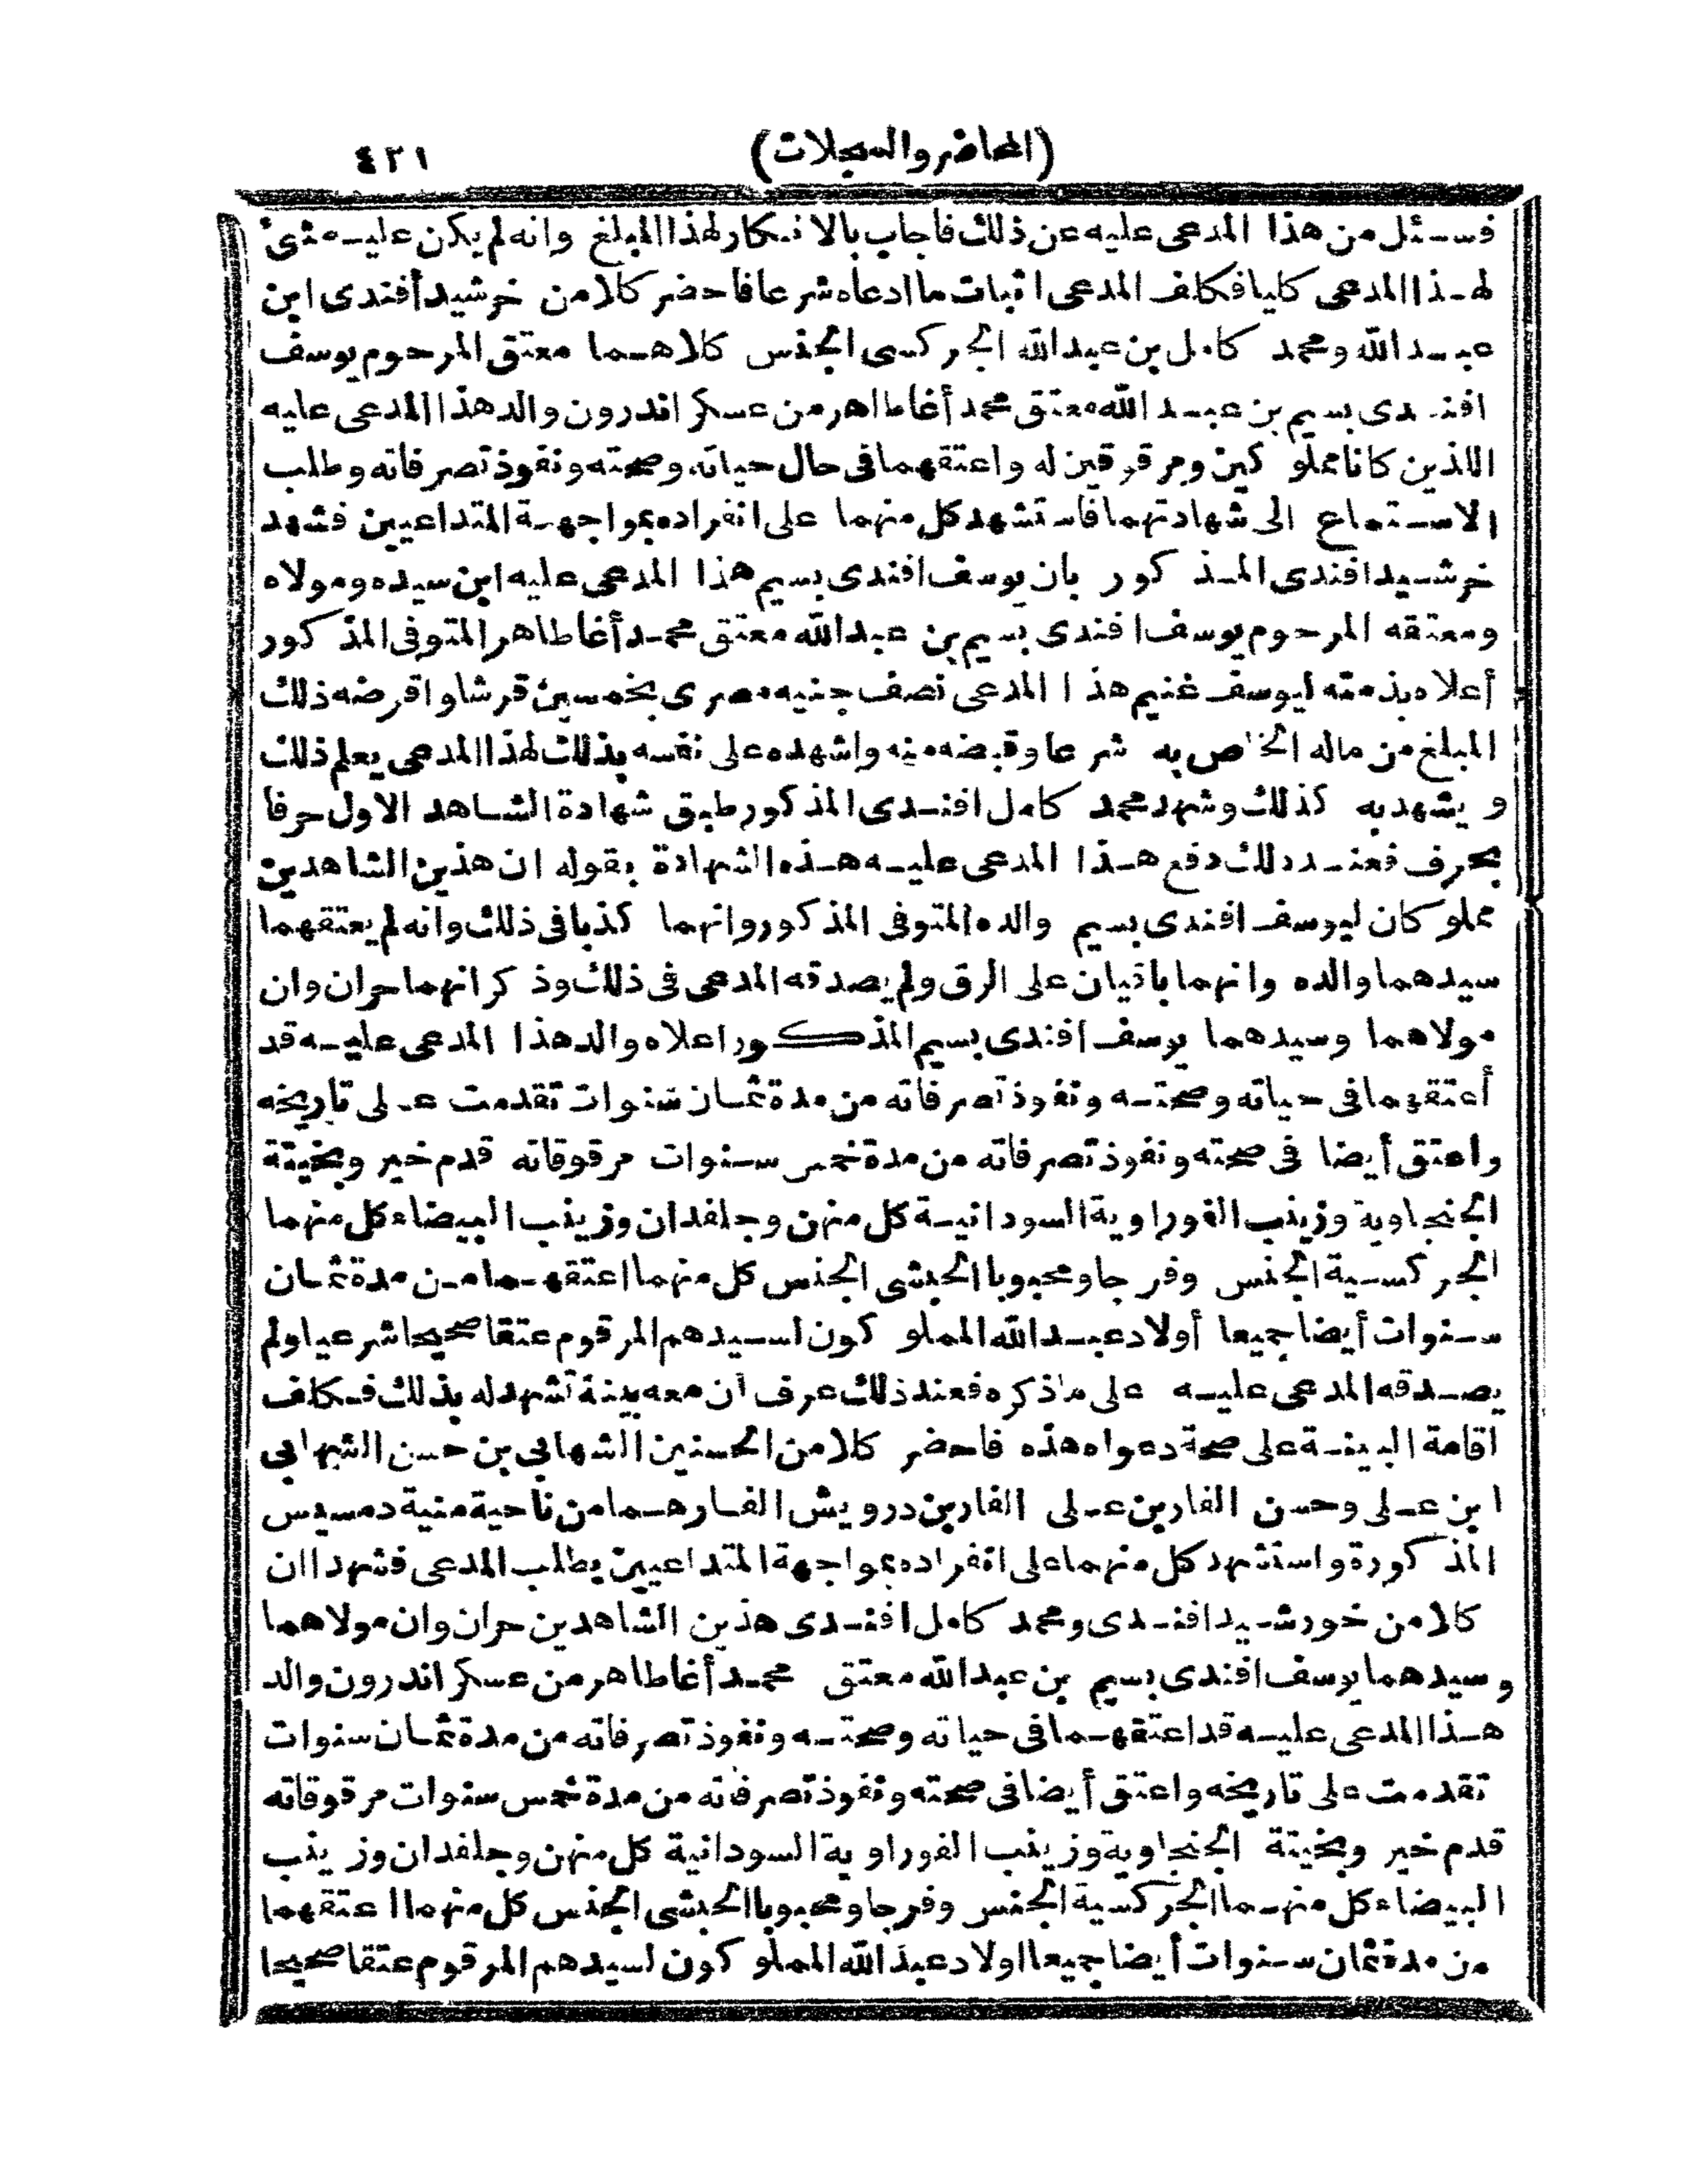 (المحاضر والسجلات) ٤٢١
فسئل من هذا المدعى عليه عن ذلك فاجاب بالانكار لهذا المبلغ وانه لم يكن عليه شئ
لهذا المدعى كليا فكلف المدعى اثبات ما ادعاه شرعا فاحضر كلا من خرشيد أفندى ابن
عبد الله ومحمد كامل بن عبد الله الجركسى الجنس كلاهما معتق المرحوم يوسف
افندى بسيم بن عبد الله معتق محمد أغا طاهر من عسكر اندرون والد هذا المدعى عليه
اللذين كانا مملوكين ومرقوقين له واعتقهما فى حال حياته وصحته ونفوذ تصرفاته وطلب
الاستماع الى شهادتهما فاستشهد كل منهما على انفراده بمواجهة المتداعيين فشهد
خرشيد افندى المذكور بان يوسف افندى بسيم هذا المدعى عليه ابن سيده ومولاه
ومعتقه المرحوم يوسف افندى بسيم بن عبد الله معتق محمد أغا طاهر المتوفى المذكور
أعلاه بذمته ليوسف غنيم هذا المدعى نصف جنيه مصرى بخمسين قرشا واقرضه ذلك
المبلغ من ماله الخاص به شرعا وقبضه منه واشهده على نفسه بذلك لهذا المدعى يعلم ذلك
ويشهد به كذلك وشهد محمد كامل افندى المذكور طبق شهادة الشاهد الاول حرفا
بحرف فعند ذلك دفع هذا المدعى عليه هذه الشهادة بقوله ان هذين الشاهدين
مملوكان ليوسف افندى بسيم والده المتوفى المذكور وانهما كذبا فى ذلك وانه لم يعتقهما
سيدهما والده وانهما باقيان على الرق ولم يصدقه المدعى فى ذلك وذكر انهما حران وان
مولاهما وسيدهما يوسف افندى بسيم المذكور اعلاه والد هذا المدعى عليه قد
أعتقهما فى حياته وصحته ونفوذ تصرفاته من مدة ثمان سنوات تقدمت على تاريخه
واعتق أيضا فى صحته ونفوذ تصرفاته من مدة خمس سنوات مرقوقاته قدم خير وبخيتة
الجنجاوية وزينب الفوراوية السودانية كل منهن وجلفدان وزينب البيضاء كل منهما
الجركسية الجنس وفرجا ومحبوبا الحبشى الجنس كل منهما اعتقهما من مدة ثمان
سنوات أيضا جميعا أولاد عبد الله المملوكون لسيدهم المرقوم عتقا صحيحا شرعيا ولم
يصدقه المدعى عليه على ما ذكره فعند ذلك عرف أن معه بينة تشهد له بذلك فكلف
اقامة البينة على صحة دعواه هذه فاحضر كلا من الحسنين الشهابي بن حسن الشهابي
ابن على وحسن الفار بن على الفار بن درويش الفار هما من ناحية منية دمسيس
المذكورة واستشهد كل منهما على انفراده بمواجهة المتداعيين بطلب المدعى فشهدا ان
كلا من خورشيد افندى ومحمد كامل افندى هذين الشاهدين حران وان مولاهما
وسيدهما يوسف افندى بسيم بن عبد الله معتق محمد أغا طاهر من عسكر اندرون والد
هذا المدعى عليه قد اعتقهما فى حياته وصحته ونفوذ تصرفاته من مدة ثمان سنوات
تقدمت على تاريخه واعتق أيضا فى صحته ونفوذ تصرفاته من مدة خمس سنوات مرقوقاته
قدم خير وبخيتة الجنجاوية وزينب الفوراوية السودانية كل منهن وجلفدان وزينب
البيضاء كل منهما الجركسية الجنس وفرجا ومحبوبا الحبشى الجنس كل منهما اعتقهما
من مدة ثمان سنوات أيضا جميعا اولاد عبد الله المملوكون لسيدهم المرقوم عتقا صحيحا